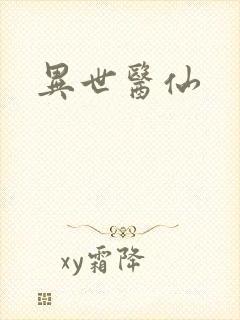 異世醫仙
xy霜降